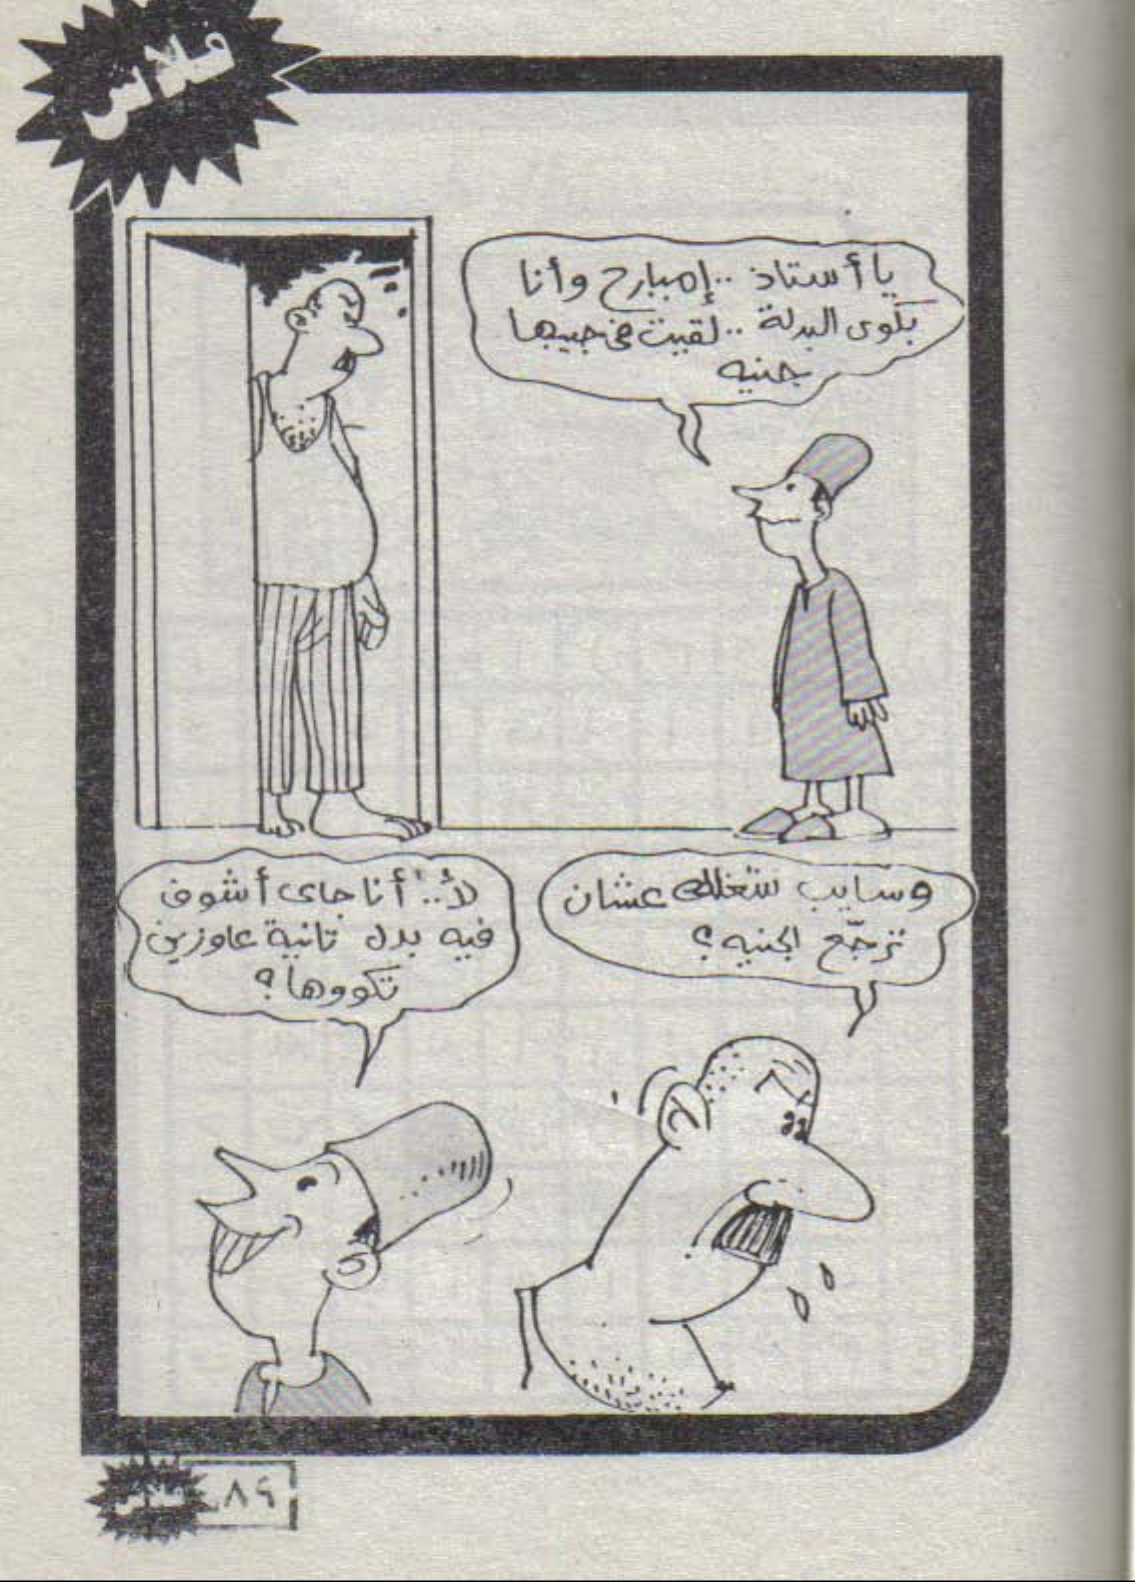 فلاش
يا أستاذ ..إمبارح وأنا
بكوى البدلة ..لقيت فى جيبها
جنيه
وسايب شغلك عشان
ترجّع الجنيه؟
لأ.. أنا جاى أشوف
فيه بدل تانية عاوزين
تكووها؟
٨٩